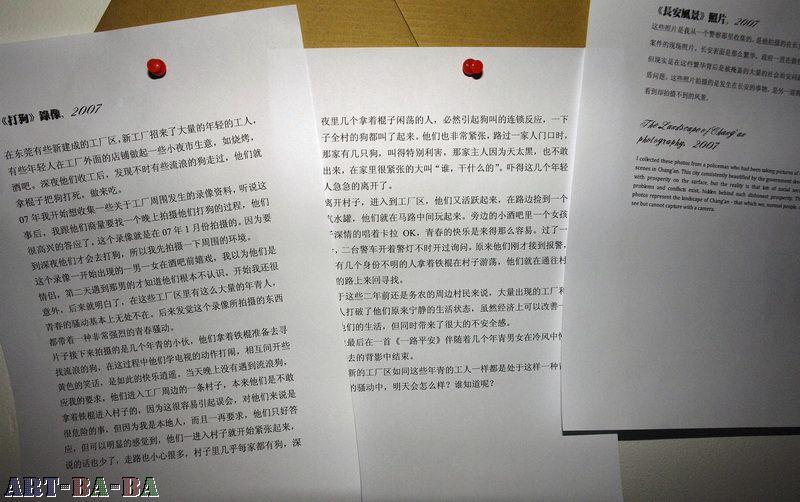 《打狗》錄像，2007
在东莞有些新建成的工厂区，新工厂招来了大量的年轻的工人，
有些年轻人在工厂外面的店铺做起一些小夜市生意，如烧烤，
酒吧。深夜他们收工后，发现不时有些流浪的狗走过，他们就
拿棍子把狗打死，做来吃。
07 年我开始想收集一些关于工厂周围发生的录像资料，听说这
事后，我跟他们商量要找一个晚上拍摄他们打狗的过程，他们
很高兴的答应了，这个录像就是在 07 年 1 月份拍摄的。因为要
到深夜他们才会去打狗，所以我先拍摄一下周围的环境。
这个录像一开始出现的一男一女在酒吧前嬉戏，我以为他们是
情侣，第二天遇到那男的才知道他们根本不认识，开始我还很
意外，后来就明白了，在这些工厂区里有这么大量的年青人，
青春的骚动基本上无处不在。后来发觉这个录像所拍摄的东西
都带着一种非常强烈的青春骚动。
片子接下来拍摄的是几个年青的小伙，他们拿着铁棍准备去寻
找流浪的狗，在这过程中他们学电视的动作打闹，相互间开些
黄色的笑话，是如此的快乐逍遥。当天晚上没有遇到流浪狗，
应我的要求，他们进入工厂周边的一条村子，本来他们是不敢
拿着铁棍进入村子的，因为这很容易引起误会，对他们来说是
很危险的事，但因为我是本地人，而且一再要求，他们只好答
应，但可以明显的感觉到，他们一进入村子就开始紧张起来，
说的话也少了，走路也小心很多，村子里几乎每家都有狗，深
夜里几个拿着棍子闲荡的人，必然引起狗叫的连锁反应，一下
子全村的狗都叫了起来。他们也非常紧张，路过一家人门口时，
那家有几只狗，叫得特别利害，那家主人因为天太黑，也不敢
出来，在家里很紧张的大叫"谁，干什么的"。吓得这几个年轻
人急急的离开了。
离开村子，进入到工厂区，他们又活跃起来，在路边捡到一个
汽水罐，他们就在马路中间玩起来。旁边的小酒吧里一个女孩
子深情的唱着卡拉 OK，青春的快乐是来得那么容易。过了一
，二台警车开着警灯不时开过询问，原来他们刚才接到报警，
有几个身份不明的人拿着铁棍在村子游荡，他们就在通往村
的路上来回寻找。
于这些二年前还是务农的周边村民来说，大量出现的工厂和
人打破了他们原来宁静的生活状态，虽然经济上可以改善一
们的生活，但同时带来了很大的不安全感。
最后在一首《一路平安》伴随着几个年青男女在冷风中
去的背影中结束。
新的工厂区如同这些年青的工人一样都是处于这样一种
的骚动中，明天会怎么样？谁知道呢？
《長安風景》照片，2007
这些照片是我从一个警察那里收集的，是他拍摄的在长
案件的现场照片。长安表面是那么繁华，政府一直在
但现实是在这些繁华背后是被掩盖的大量的社会治安问
盾问题，这些照片拍摄的是发生在长安的事物，是另一道
看到却拍摄不到的风景。
The Landscape of Chang'an
photography, 2007
I collected these photos from a policeman who had been taking pictures of
scenes in Chang'an. This city consistently beautified by the government is
with prosperity on the surface, but the reality is that lots of social
problems and conflicts exist, hidden behind such dishonest prosperity. T
photos represent the landscape of Chang'an - that which we, normal people,
see but cannot capture with a camera.
ART-BA-BA